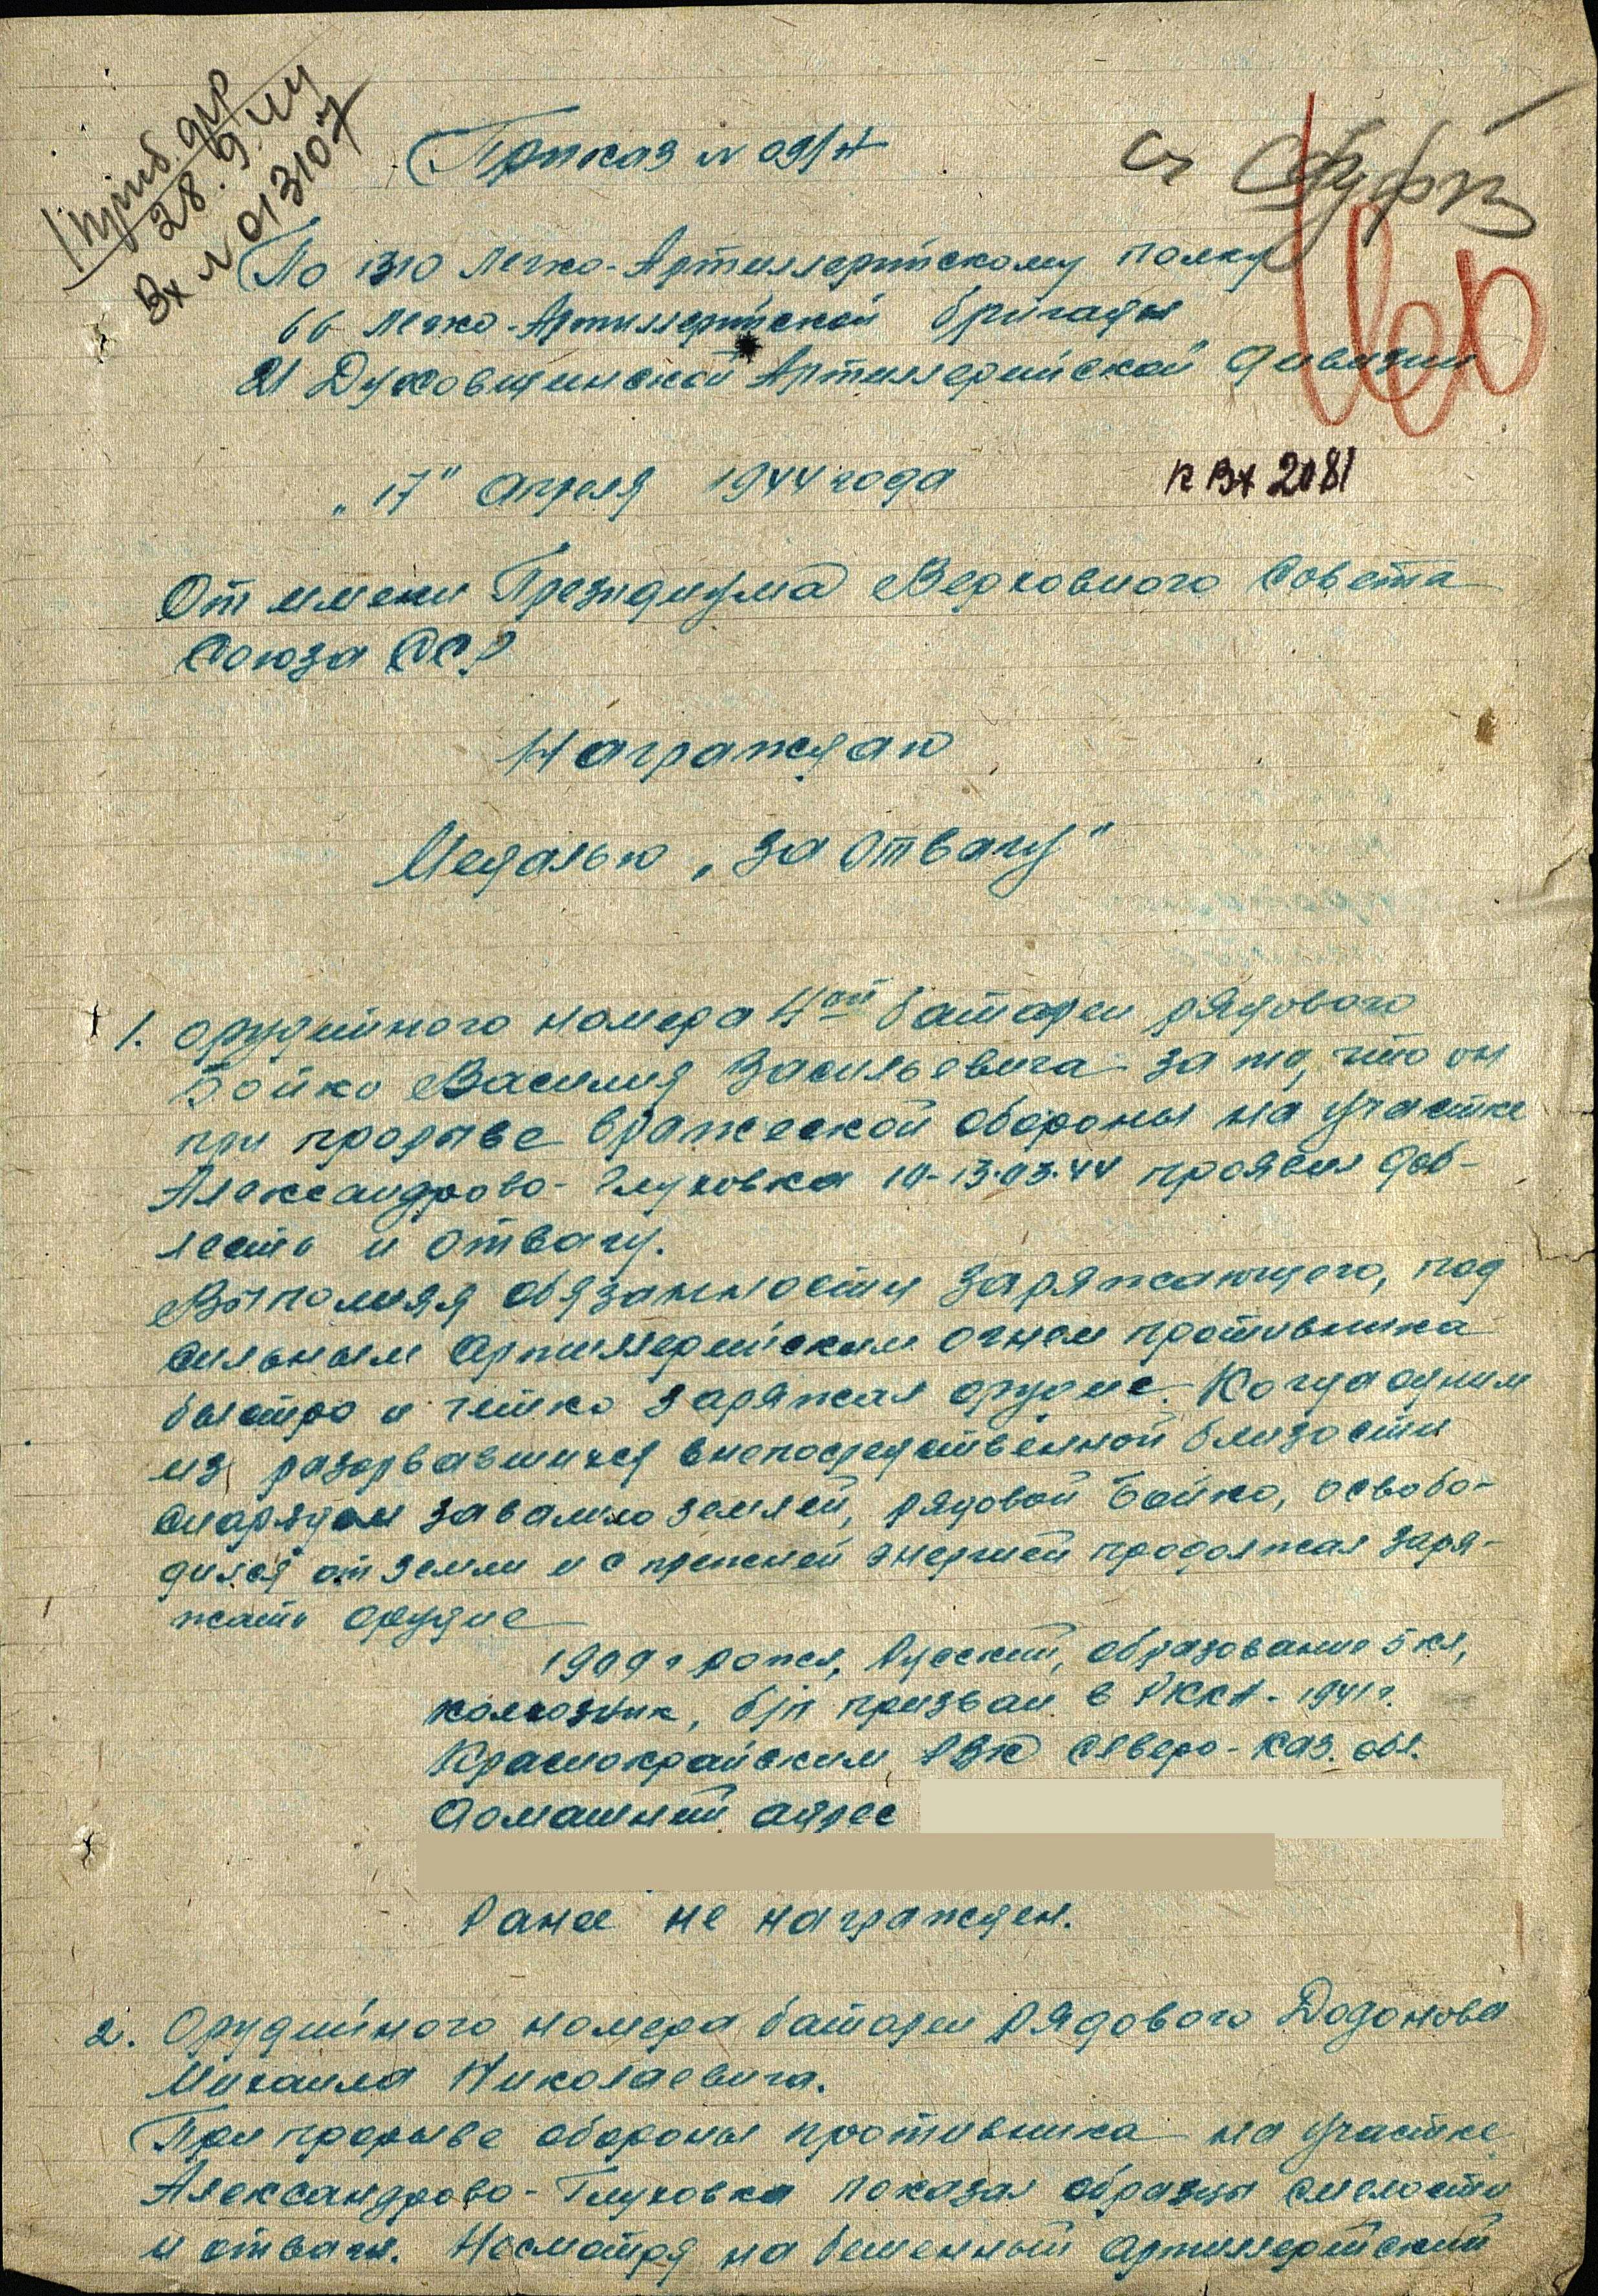 28.9.44
Вх № 013107
Приказ № 09/н
По 1310 Легко-Артиллерийскому полку
66 Легко-Артиллерийской бригады
21 Духовщинской Артиллерийской дивизии
"17" апреля 1944 года
к Вх 2081
От имени Президиума Верховного Совета
Союза ССР
Награждаю
Медалью "За Отвагу"
1. Орудийного номера 4ой батареи рядового
Бойко Василия Васильевича за то, что он
при прорыве вражеской обороны на участке
Александрово-Глуховка 10-13.03.44 проявил доб-
лесть и отвагу.
Выполняя обязанности заряжающего, под
сильным артиллерийским огнем противника
быстро и четко заряжал орудие. Когда одним
из разорвавшихся внепосредственной близости
снарядом завалило землей, рядовой Бойко, освобо-
дился от земли и с прежней энергией продолжал заря-
жать орудие
1909 г рожд, Русский, образование 5 кл,
колхозник, б/п призван в РККА - 1941 г.
Краснокрайским РВК Северо-Каз. обл.
Домашний адрес
Ранее не награжден.
2. Орудийного номера батареи рядового Додонова
Михаила Николаевича.
При прорыве обороны противника на участке
Александрово-Глуховка показал образцы смелости
и отваги. Несмотря на бешенный артиллерийский